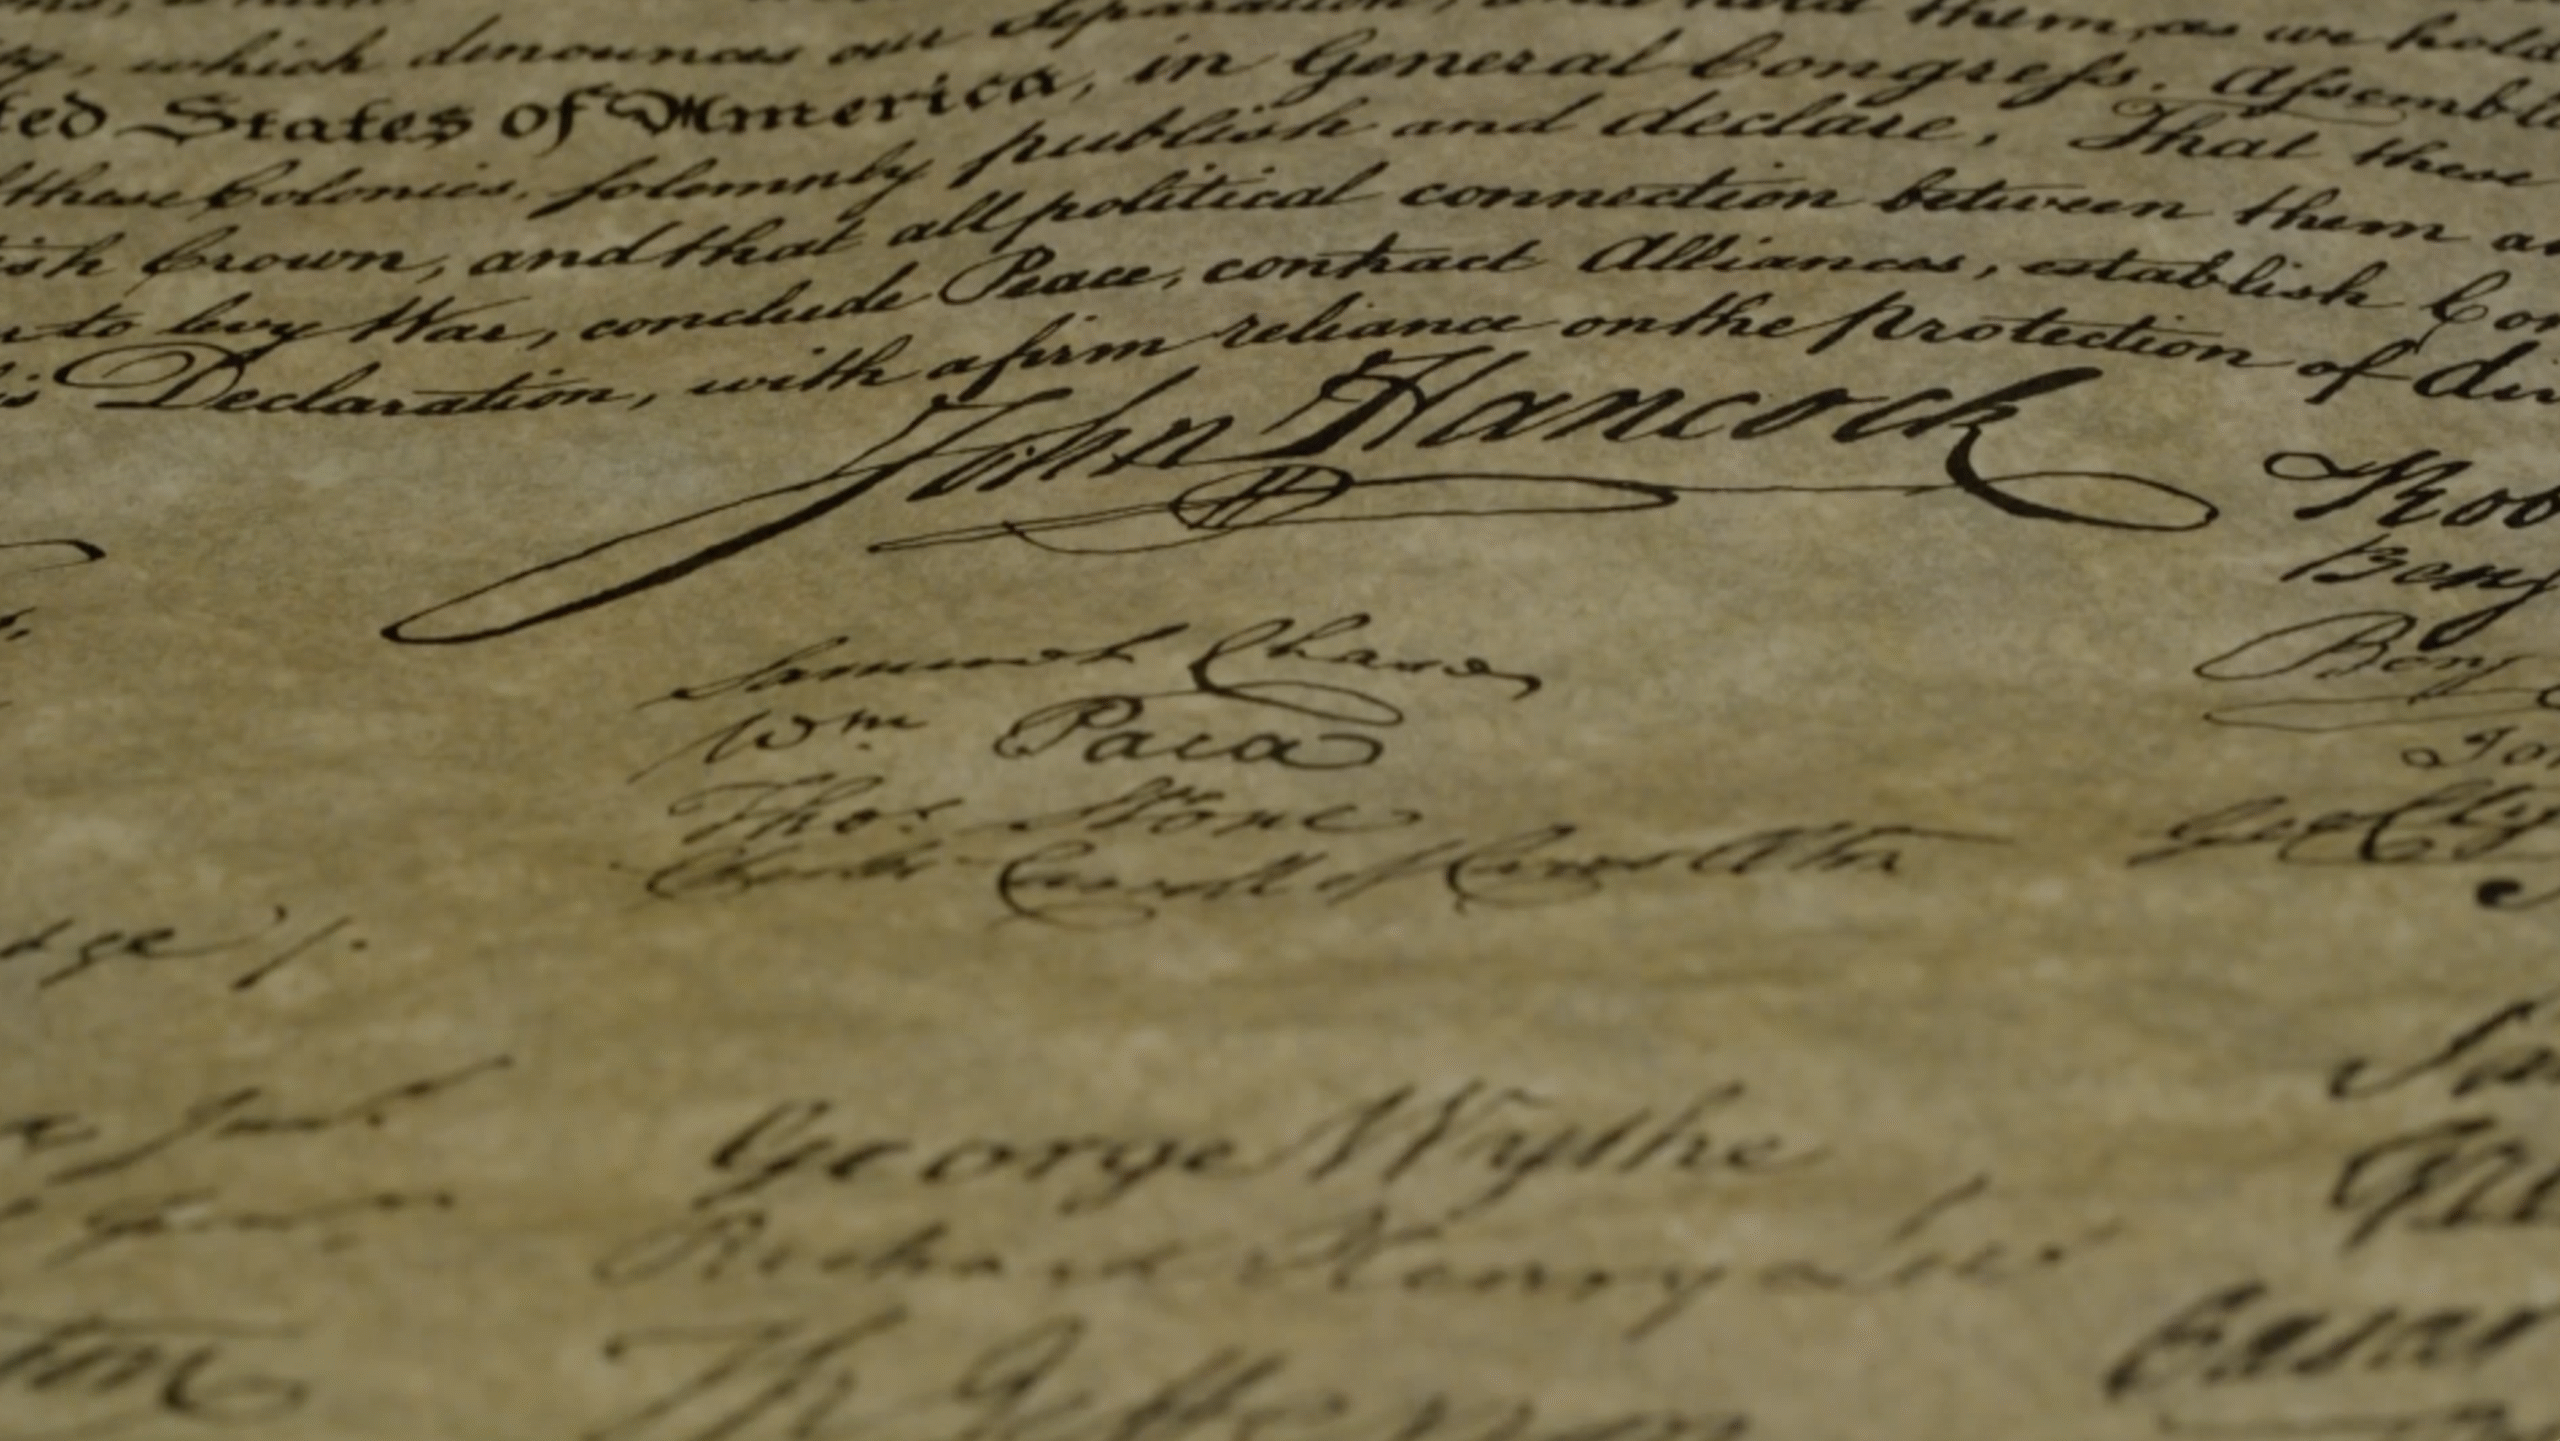 which denounces our Separation, and hold them, as we hold
ted States of America, in General Congress, Assembl
these Colonies, solemnly publish and declare, That these
ish Crown, and that all political connection between them a
to levy War, conclude Peace, contract Alliances, establish Co
is Declaration, with a firm reliance on the Protection of di
John Hancock
Rob
Benj
Samuel Chase
Benj
Wm Paca
Jo
Thos Stone
Geo Cly
Charles Carroll of Carrollton
dge
George Wythe
Richard Henry Lee
Th Jefferson
Caesar